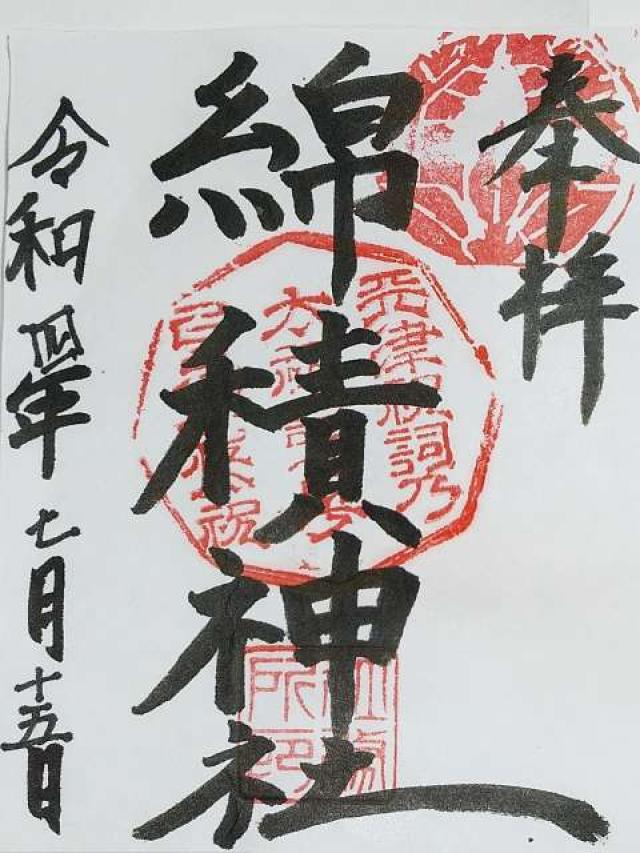 奉拝
綿積神社
令和四年
七月十五日